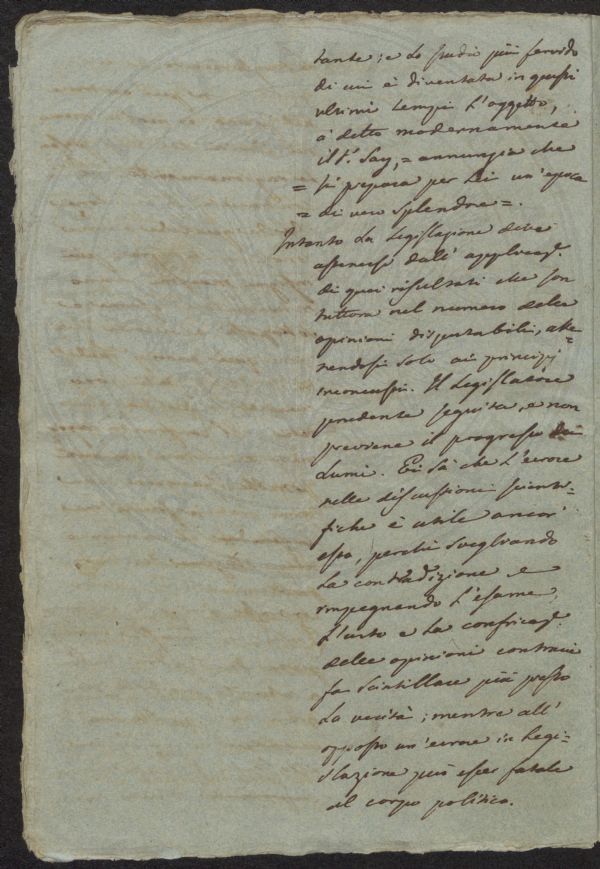 tante; e lo studio più fervido
di cui è diventata in questi
ultimi tempi l'oggetto,
à detto modernamente
il S.r Say, = annunzia che
= si prepara per lei un'epoca
= di vero splendore =.
Intanto la legislazione deve
astenersi dall'applicaz.e
di quei risultati che son
tuttora nel numero delle
opinioni disputabili, atte-
nendosi solo ai principj
inconcussi. Il Legislatore
prudente seguita, e non
previene il progresso dei
Lumi. Ei sà che l'errore
nelle discussioni scienti-
fiche è utile ancor'
esso, perchè svegliando
la contradizione e
impegnando l'esame,
l'urto e la confricaz.e
delle opinioni contrarie
fa scintillare più presto
la verità; mentre all'
opposto un'errore in Legi-
slazione può esser fatale
al corpo politico.